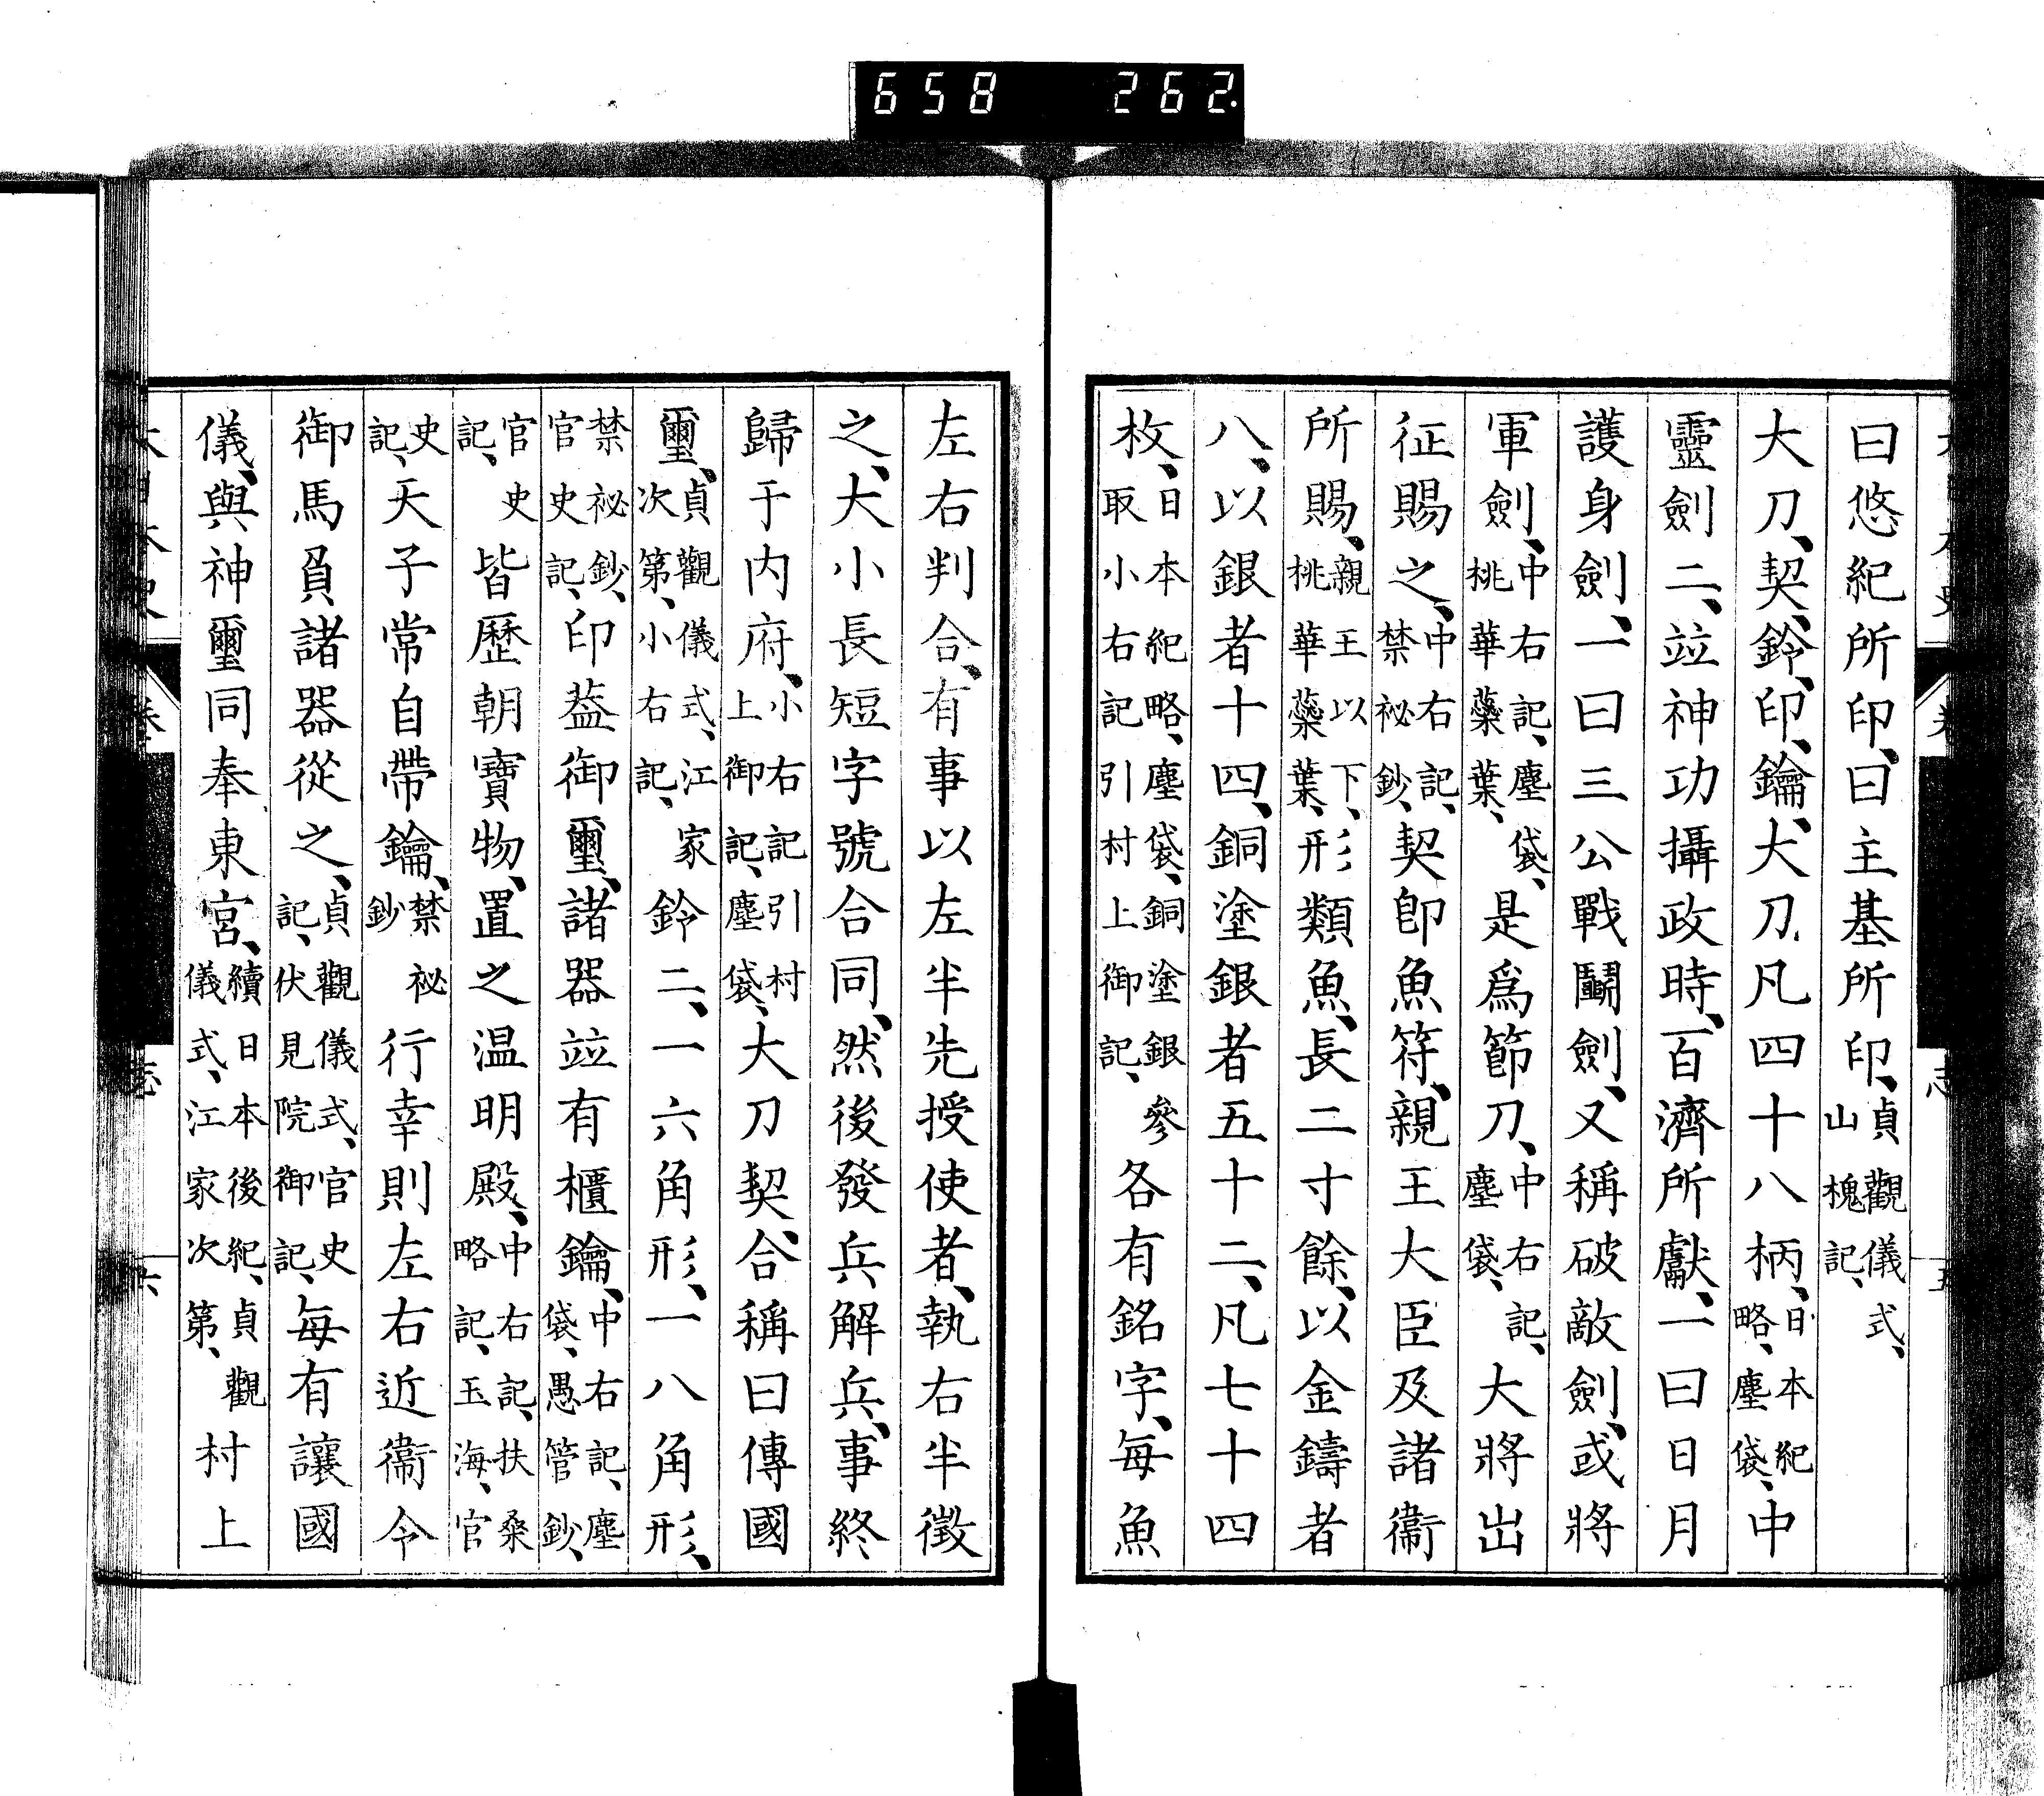 658 262.
曰悠紀所印、曰主基所印、貞觀儀式、山槐記、
大刀、契、鈴、印、鑰、大刀凡四十八柄、日本紀略、塵袋、中
靈劍二、竝神功攝政時、百濟所獻、一曰日月
護身劍、一曰三公戰鬭劍、又稱破敵劍、或將
軍劍、中右記、塵袋、桃華蘂葉、是爲節刀、中右記、塵袋、大將出
征賜之、中右記、禁祕鈔、契卽魚符、親王大臣及諸衞
所賜、親王以下、桃華蘂葉、形類魚、長二寸餘、以金鑄者
八、以銀者十四、銅塗銀者五十二、凡七十四
枚、日本紀略、塵袋、銅塗銀參取小右記引村上御記、各有銘字、每魚
左右判合、有事以左半先授使者、執右半徵
之、大小長短字號合同、然後發兵、解兵、事終
歸于内府、小右記引村上御記、塵袋、大刀契、合稱曰傳國
璽、貞觀儀式、江家次第、小右記、鈴二、一六角形、一八角形、
禁祕鈔、官史記、印葢御璽、諸器竝有櫃鑰、中右記、塵袋、愚管鈔、
官史記、皆歷朝寶物、置之温明殿、中右記、扶桑略記、玉海、官
史記、天子常自帶鑰、禁祕鈔行幸則左右近衞令
御馬負諸器從之、貞觀儀式、官史記、伏見院御記、每有讓國
儀、與神璽同奉東宮、續日本後紀、貞觀儀式、江家次第、村上